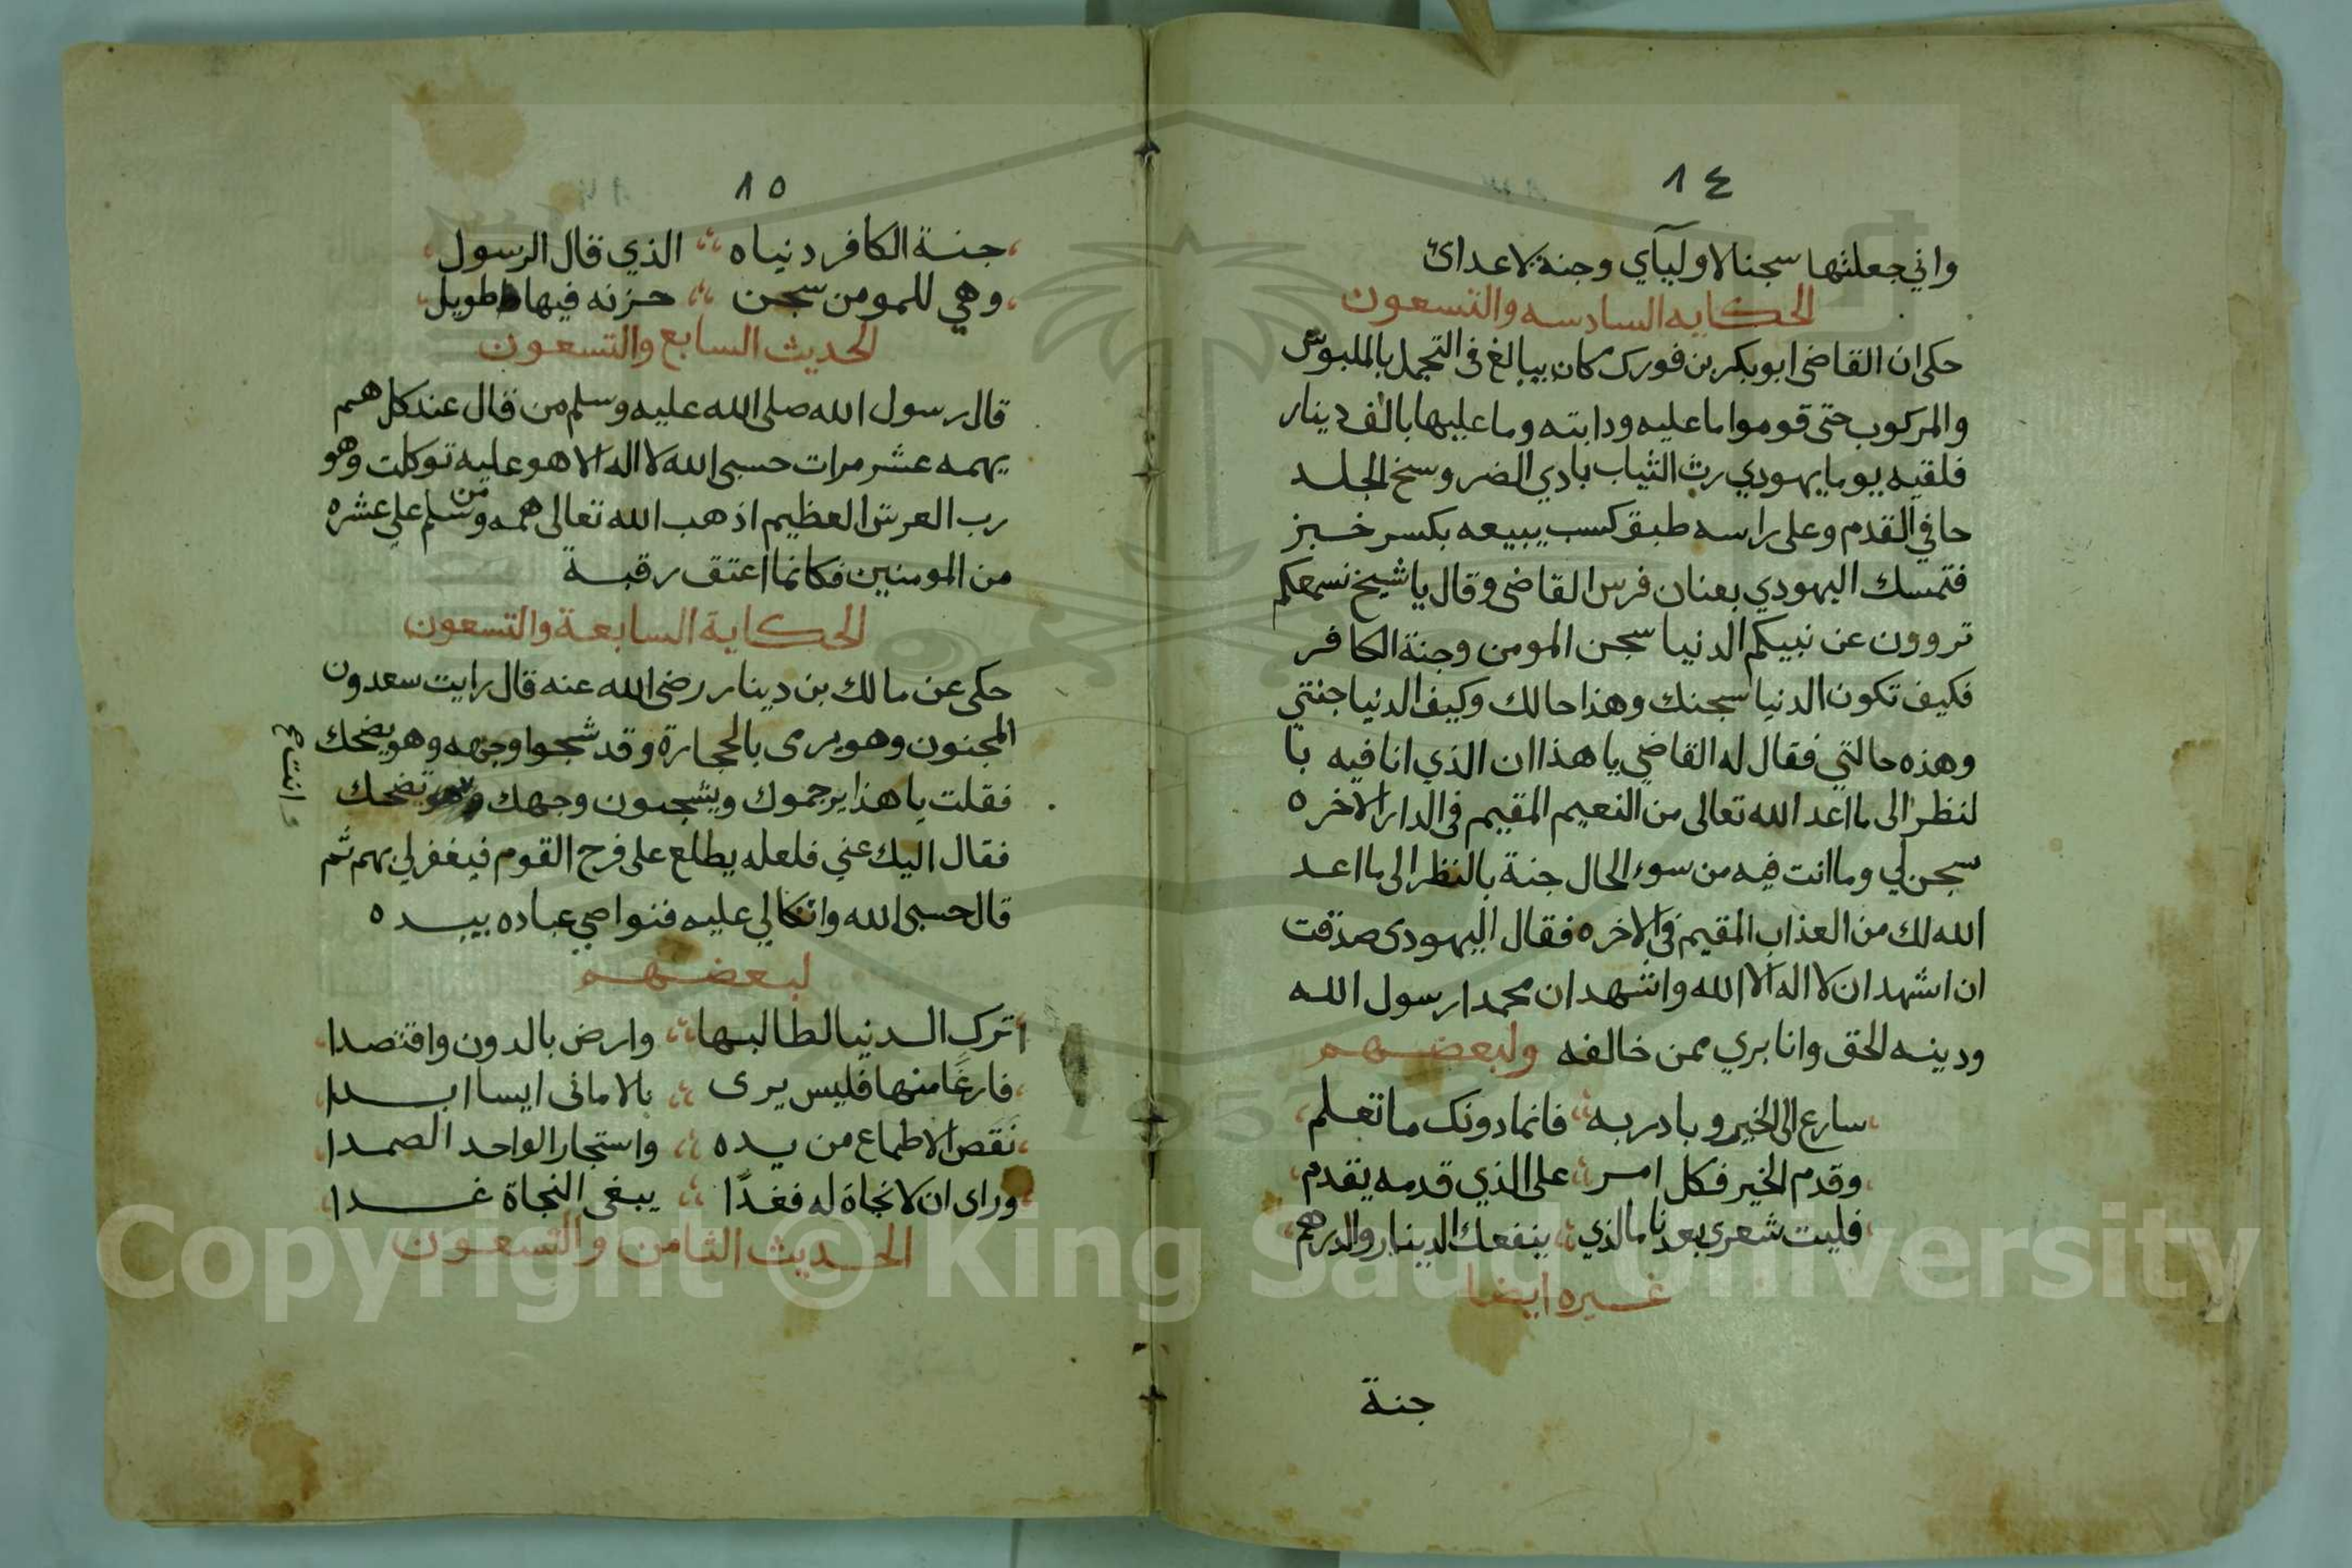 ١٤
واني جعلتها سجنا لاوليآي وجنة لاعدائ
الحكايه السادسه والتسعون
حكى ان القاضى ابو بكر بن فورك كان يبالغ فى التجمل بالملبوس
والمركوب حتى قوموا ما عليه ودابته وما عليها بالف دينار
فلقيه يوما يهودي رث الثياب بادي الضر وسخ الجلد
حافي القدم وعلى راسه طبق كسب يبيعه بكسر خبز
فتمسك اليهودي بعنان فرس القاضى وقال يا شيخ نسمعكم
تروون عن نبيكم الدنيا سجن المومن وجنة الكافر
فكيف تكون الدنيا سجنك وهذا حالك وكيف الدنيا جنتي
وهذه حالتي فقال له القاضي يا هذا ان الذي انا فيه با
لنظر الى ما اعد الله تعالى من النعيم المقيم فى الدار الاخره
سجن لي وما انت فيه من سوء الحال جنة بالنظر الى ما اعد
الله لك من العذاب المقيم فى الاخره فقال اليهودى صدقت
ان اشهد ان لا اله الا الله واشهد ان محمدا رسول الله
ودينه الحق وانا بري ممن خالفه ولبعضهم
سارع الى الخير وبادر به فانما دونك ما تعلم
وقدم الخير فكل امر على الذي قدمه يقدم
فليت شعري بعدنا ما الذي ينفعك الدينار والدرهم
غيره ايضا
جنة
١٥
جنة الكافر دنياه الذي قال الرسول
وهي للمومن سجن حزنه فيها طويل
الحديث السابع والتسعون
قال رسول الله صلى الله عليه وسلم من قال عند كل هم
يهمه عشر مرات حسبى الله لا اله الا هو عليه توكلت وهو
رب العرش العظيم اذهب الله تعالى همه ومن سلم على عشره
من المومنين فكانما اعتق رقبة
الحكاية السابعة والتسعون
حكى عن مالك بن دينار رضى الله عنه قال رايت سعدون
المجنون وهو يرمى بالحجارة وقد شجوا وجهه وهو يضحك
فقلت يا هذا يرجموك ويشجون وجهك وهو تضحك
وانت
فقال اليك عني فلعله يطلع على فرح القوم فيغفر لي بهم ثم
قال حسبى الله واتكالي عليه فنواصي عباده بيده
لبعضهم
اترك الدنيا لطالبها وارض بالدون واقتصدا
فارغا منها فليس يرى بالامانى ايسا ابدا
نقص الاطماع من يده واستجار الواحد الصمدا
وراى ان لا نجاة له فغدًا يبغى النجاة غدا
الحديث الثامن والتسعون
Copyright © King Saud University
1957